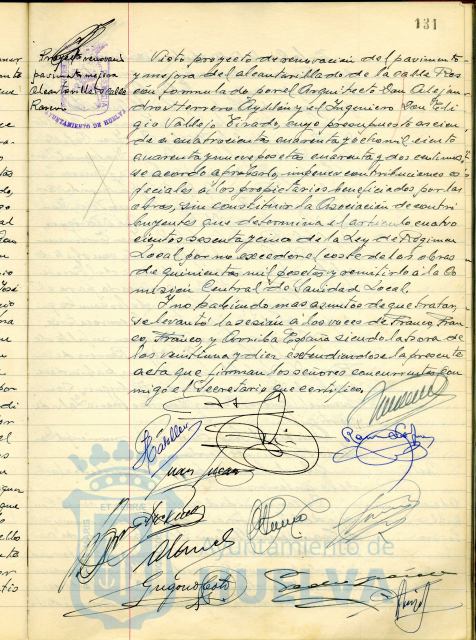 131
Proyecto renovación
pavimento y mejora
alcantarillado calle
Rascón
AYUNTAMIENTO DE HUELVA
Visto proyecto de renovación del pavimento
y mejora del alcantarillado de la calle Ras
cón formulado por el Arquitecto Don Alejan
dro Herrero Ayllón y el Ingeniero Don
Vallejo Tirado, cuyo presupuesto ascien
de a cuatrocientas cuarenta y ocho mil ciento
cuarenta y nueve pesetas cuarenta y dos céntimos,
se acordó aprobarlo, imponer contribuciones es
peciales a los propietarios beneficiados por las
obras, sin constituir la Asociación de contri
buyentes que determina el artículo cuatro
cientos sesenta y cinco de la Ley de Régimen
Local por no exceder el coste de las obras
de quinientas mil pesetas y remitirlo a la Co
misión Central de Sanidad Local.
Y no habiendo mas asuntos de que tratar,
se levantó la sesión a los voces de Franco, Fran
co, Franco, y Arriba España siendo la hora de
las veintiuna y diez extendiendose la presente
acta que firman los señores concurrentes con
migo el Secretario que certifico.
Juan
Gregorio
Ayuntamiento de
HUELVA